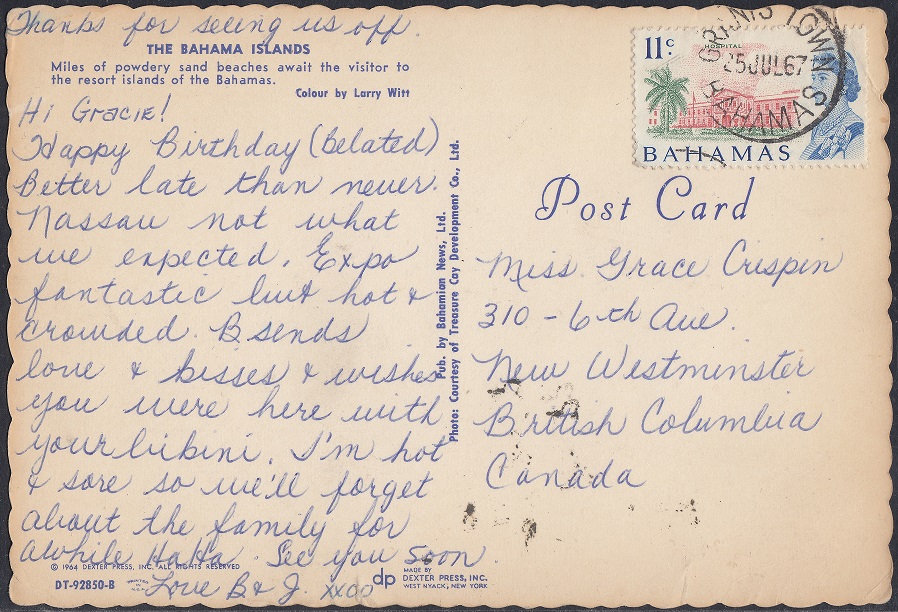 Thanks for seeing us off.
THE BAHAMA ISLANDS
Miles of powdery sand beaches await the visitor to
the resort islands of the Bahamas.
Colour by Larry Witt
Hi Gracie!
Happy Birthday (belated)
Better late than never.
Nassau not what
we expected. Expo
fantastic but hot &
crowded. B sends
love & kisses & wishes
you were here with
your bikini. I'm hot
& sore so we'll forget
about the family for
awhile HaHa. See you soon
Love B & J. xxoo
© 1964 DEXTER PRESS, INC. ALL RIGHTS RESERVED
DT-92850-B
PRINTED
IN
U.S.A.
dp
MADE BY
DEXTER PRESS, INC.
WEST NYACK, NEW YORK
Pub. by Bahamian News, Ltd.
Photo: Courtesy of Treasure Cay Development Co., Ltd.
11c
HOSPITAL
BAHAMAS
GRANTS TOWN
25 JUL 67
BAHAMAS
Post Card
Miss Grace Crispin
310 - 6th Ave.
New Westminster
British Columbia
Canada